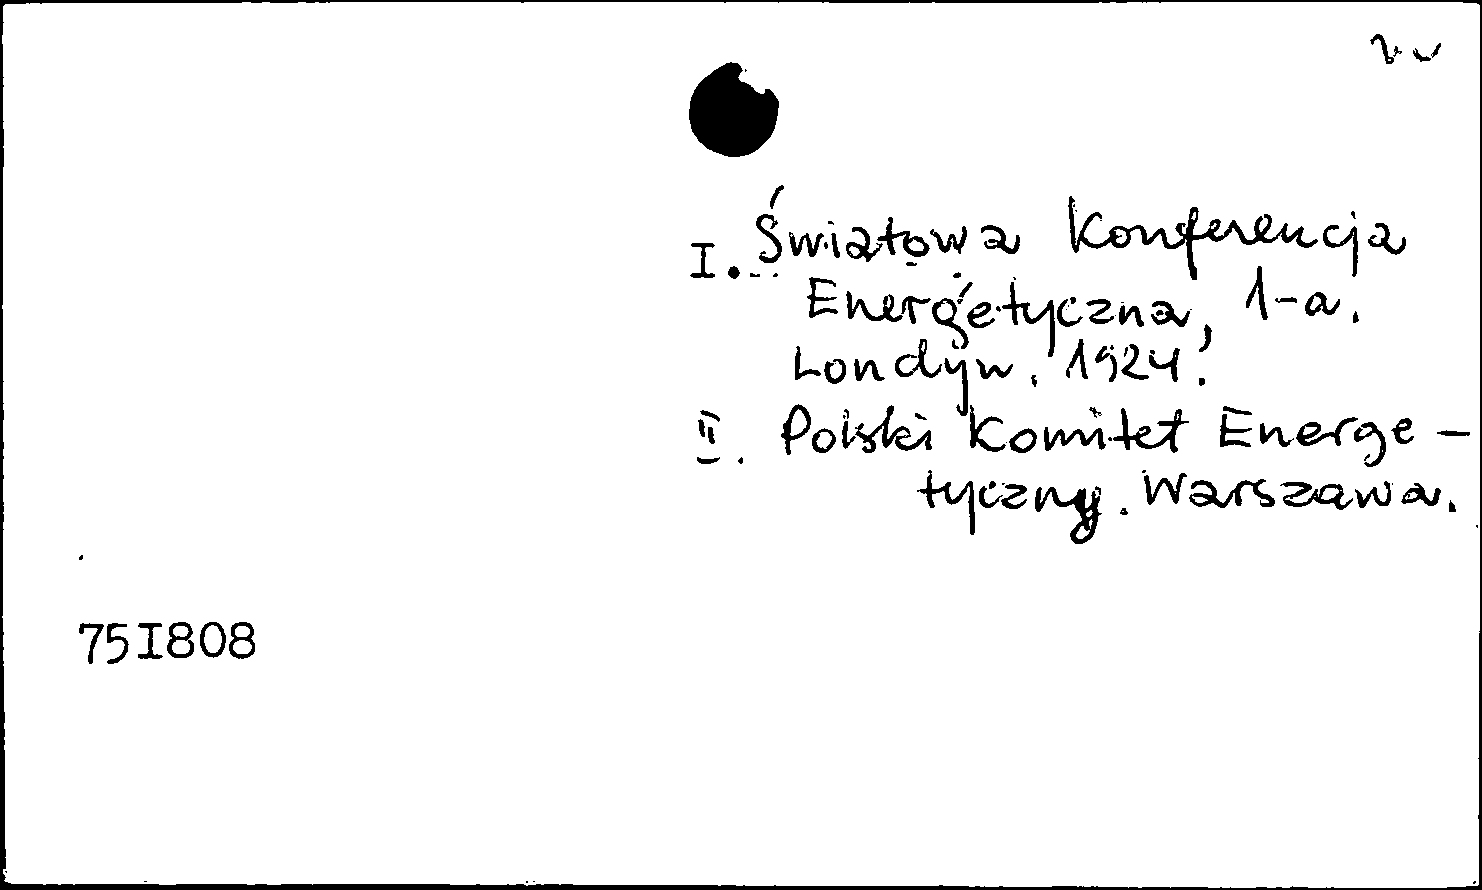 I. Światowa Konferencja
Energetyczna, 1-a.
Londyn. 1924.
II. Polski Komitet Energe-
tyczny. Warszawa.
75I808